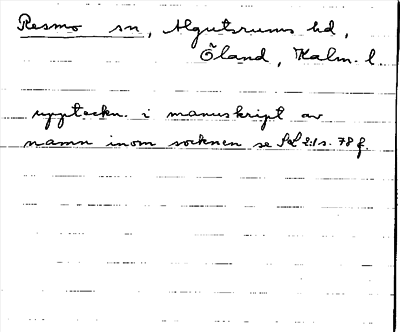 Resmo sn, Algutsrums hd,
Öland, Kalm. l.
uppteckn. i manuskript av
namn inom socknen se SoL 2:1 s. 78 f.